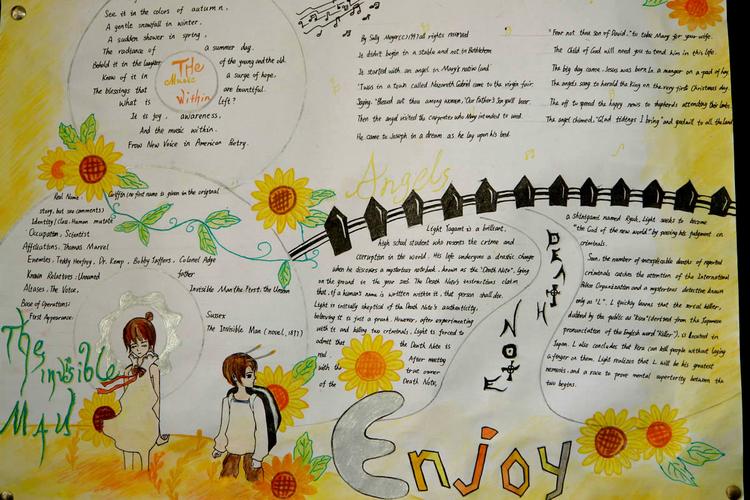 See it in the colors of autumn,
A gentle snowfall in winter,
A sudden shower in spring,
The radiance of a summer day.
Behold it in the laughter of the young and the old.
Know of it in a surge of hope,
The blessings that are bountiful.
What is life?
It is joy, awareness,
And the music within.
From New Voice in American Poetry.
THe
Music
Within
By Sally Meyer(c)1997 all rights reserved
It didn't begin in a stable and not in Bethlehem
It started with an angel in Mary's native land
'Twas in a town called Nazareth Gabriel came to the virgin fair
Saying, "Blessed art thou among women, "Our Father's Son you'll bear
Then the angel visited the carpenter who Mary intended to wed.
He came to Joseph in a dream as he lay upon his bed.
"Fear not thou son of David," to take Mary for your wife.
The Child of God will need you to tend Him in this life.
The big day came, Jesus was born In a manger on a pad of hay
The angels sang to herald the King on the very first Christmas day.
The off to spread the happy news to shepherds attending their lambs
The angel chimed, "Glad tidings I bring" and goodwill to all the land
Angels
Real Name: Griffin (no first name is given in the original
story, but see comments)
Identity/Class: Human mutate
Occupation, Scientist
Affiliations, Thomas Marvel
Enemies, Teddy Henfrey, Dr. Kemp, Bobby Jaffers, Colonel Adye
Known Relatives: Unnamed father
Aliases, The Voice, Invisible Man the First, the Unseen
Base of Operations: Sussex
First Appearance: The Invisible Man (novel, 1897)
The
invisible
MAN
Light Yagami is a brilliant,
high school student who resents the crime and
corruption in the world. His life undergoes a drastic change
when he discovers a mysterious notebook, known as the "Death Note", lying
on the ground in the year The Death Note's instructions claim
that, if a human's name is written within it, that person shall die.
Light is initially skeptical of the Death Note's authenticity,
believing it is just a prank. However, after experimenting
with it and killing two criminals, Light is forced to
admit that the Death Note is
real. After meeting
with the true owner
of the Death Note,
DEATH
NOTE
a shinigami named Ryuk, Light seeks to become
"the God of the new world" by passing his judgment on
criminals.
Soon, the number of inexplicable deaths of reported
criminals catches the attention of the International
Police Organization and a mysterious detective known
only as "L". L quickly learns that the serial killer,
dubbed by the public as "Kira" (derived from the Japanese
pronunciation of the English word "Killer"), is located in
Japan. L also concludes that Kira can kill people without laying
a finger on them. Light realizes that L will be his greatest
nemesis, and a race to prove mental superiority between the
two begins.
Enjoy